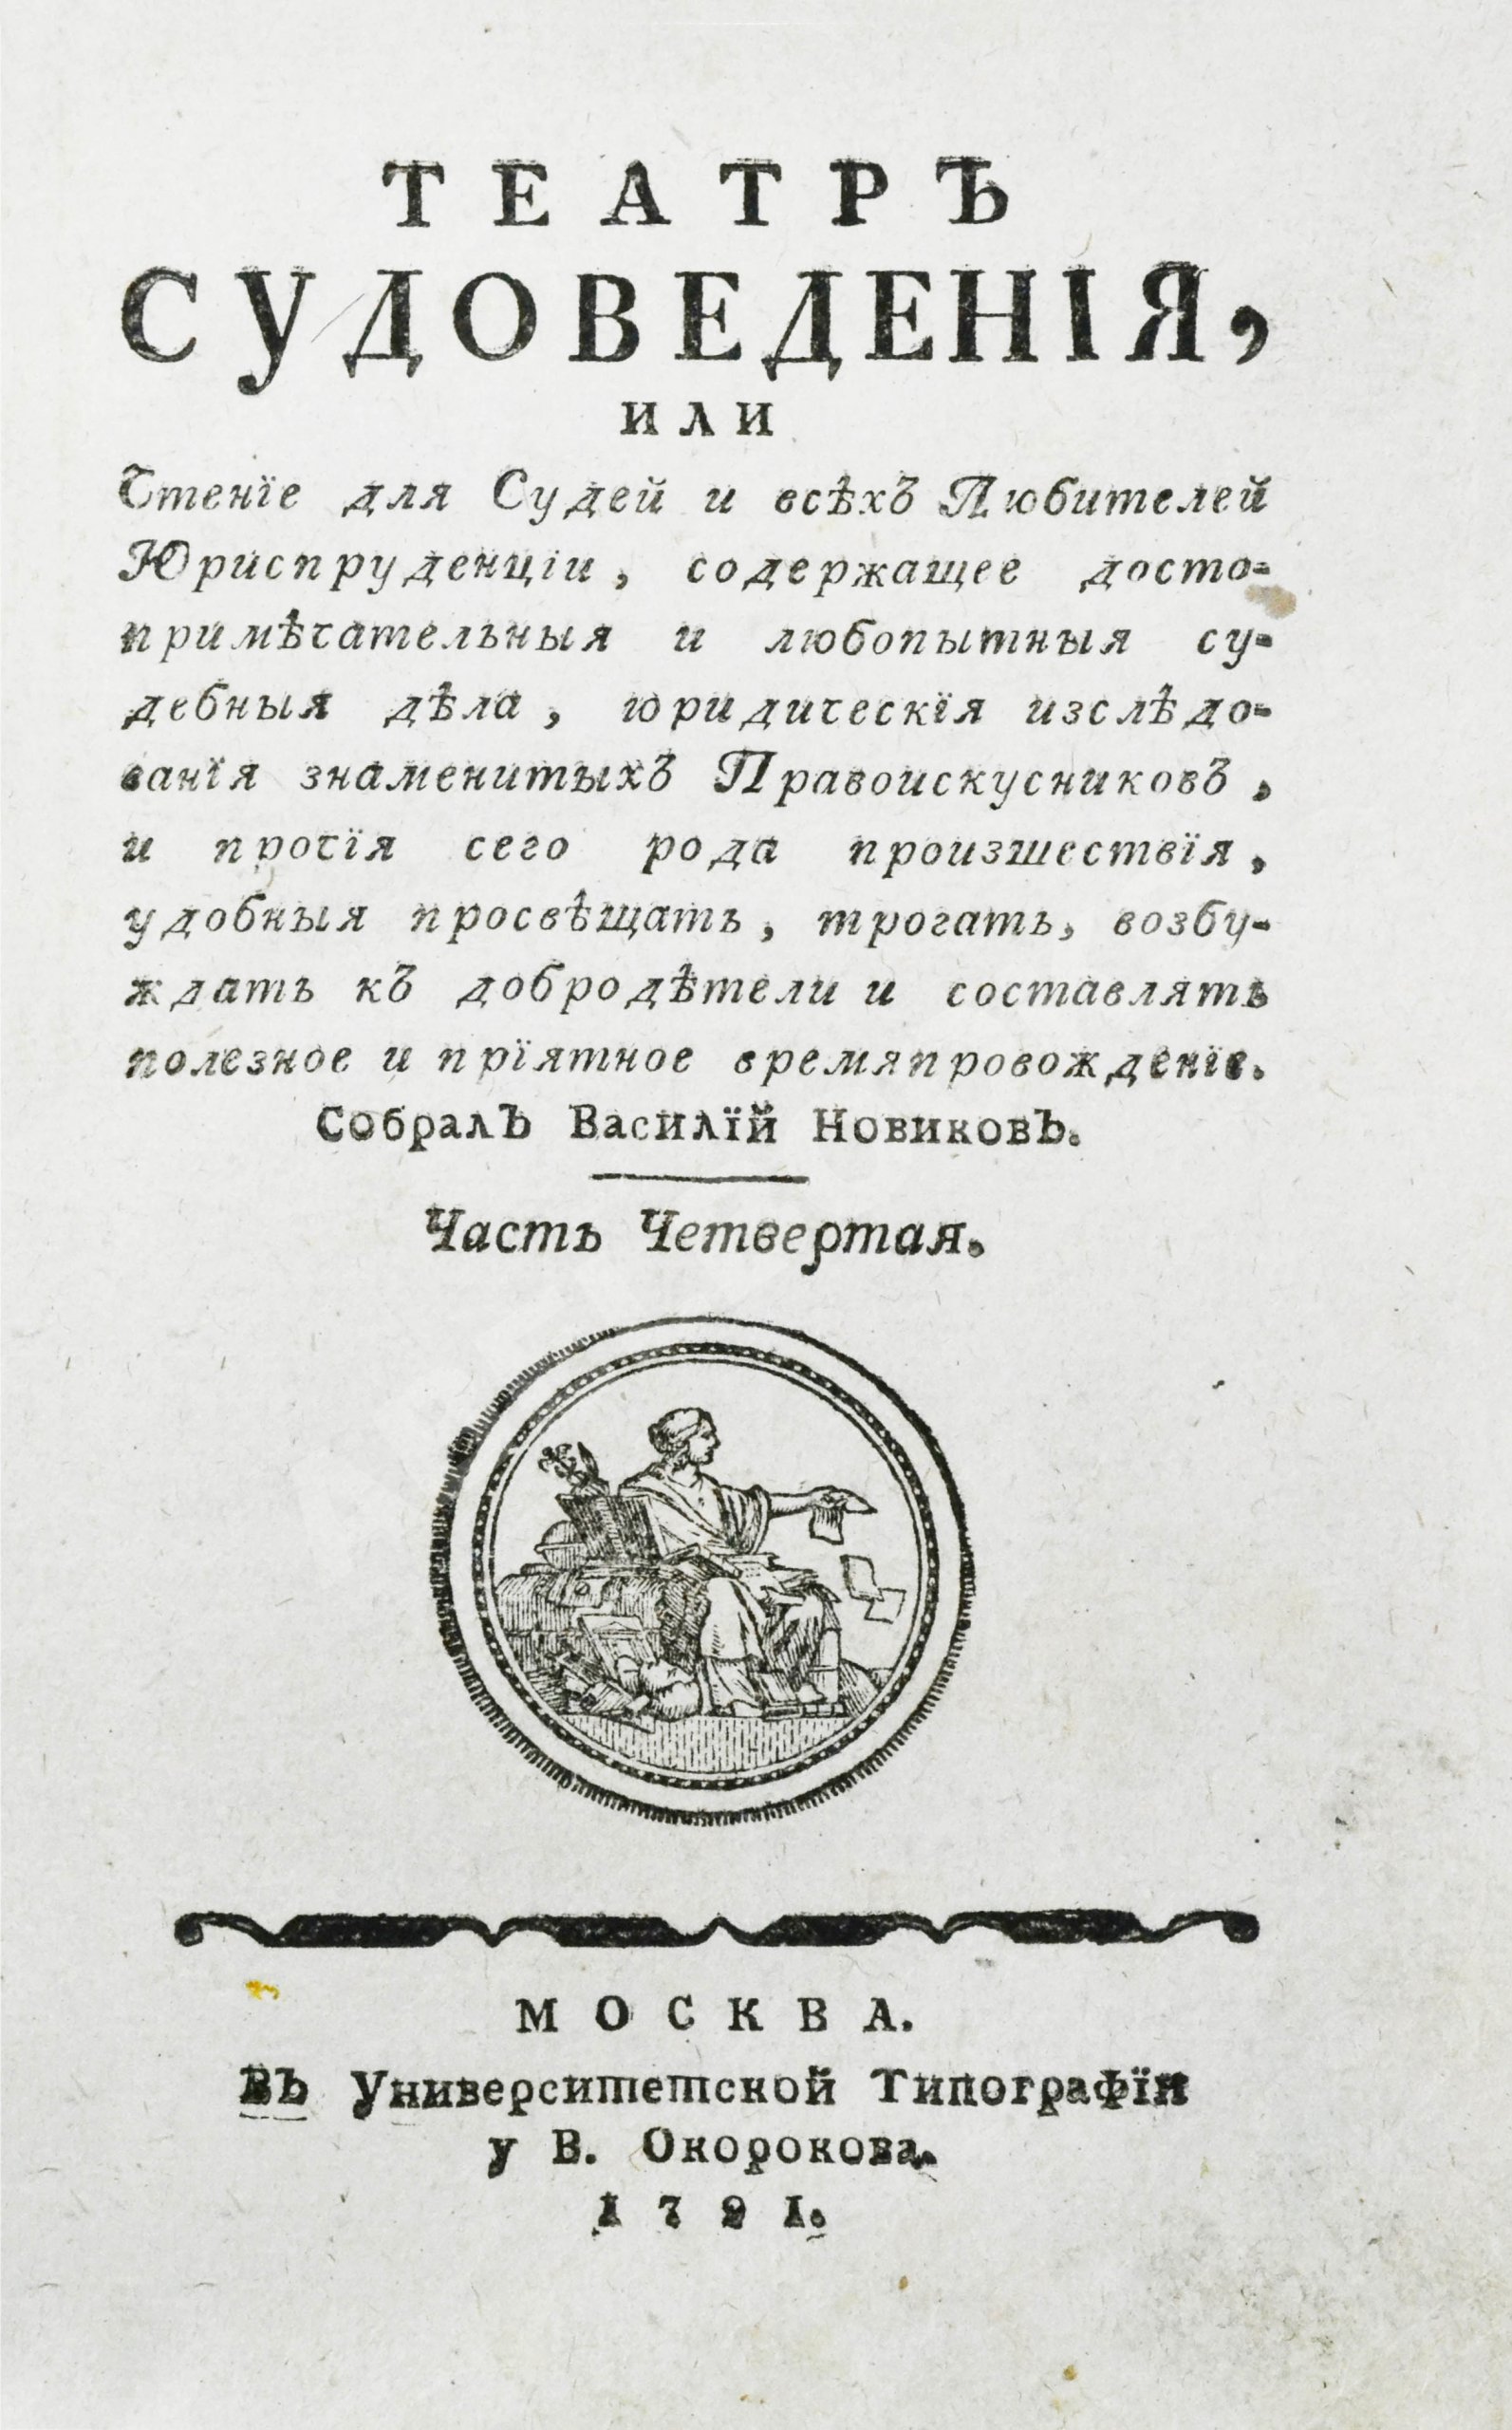 ТЕАТРЪ
СУДОВЕДЕНІЯ,
или
Чтенїе для Судей и всѣхъ Любителей
Юриспруденціи, содержащее досто-
примѣчательныя и любопытныя су-
дебныя дѣла, юридическїя изслѣдо-
ванїя знаменитыхъ Правоискусниковъ,
и прочїя сего рода произшествїя,
удобныя просвѣщать, трогать, возбу-
ждать къ добродѣтели и составлять
полезное и прїятное времяпровожденїе.
Собралъ Василїй Новиковъ.
Часть Четвертая.
МОСКВА.
Въ Университетской Типографїи
у В. Окорокова.
1791.